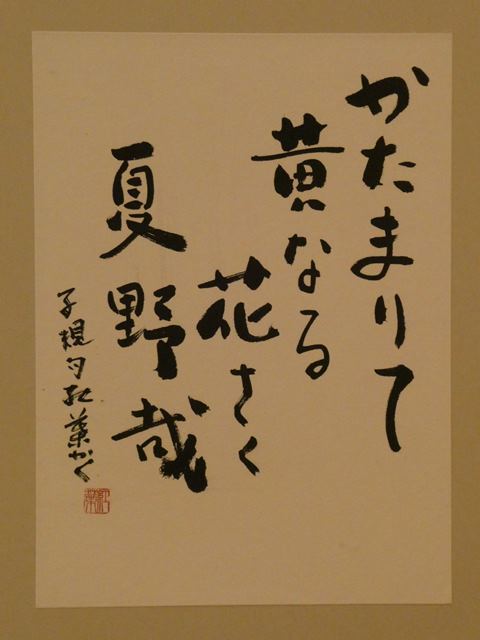 かたまりて
黄なる
花さく
夏野哉
子規句紅葉かく